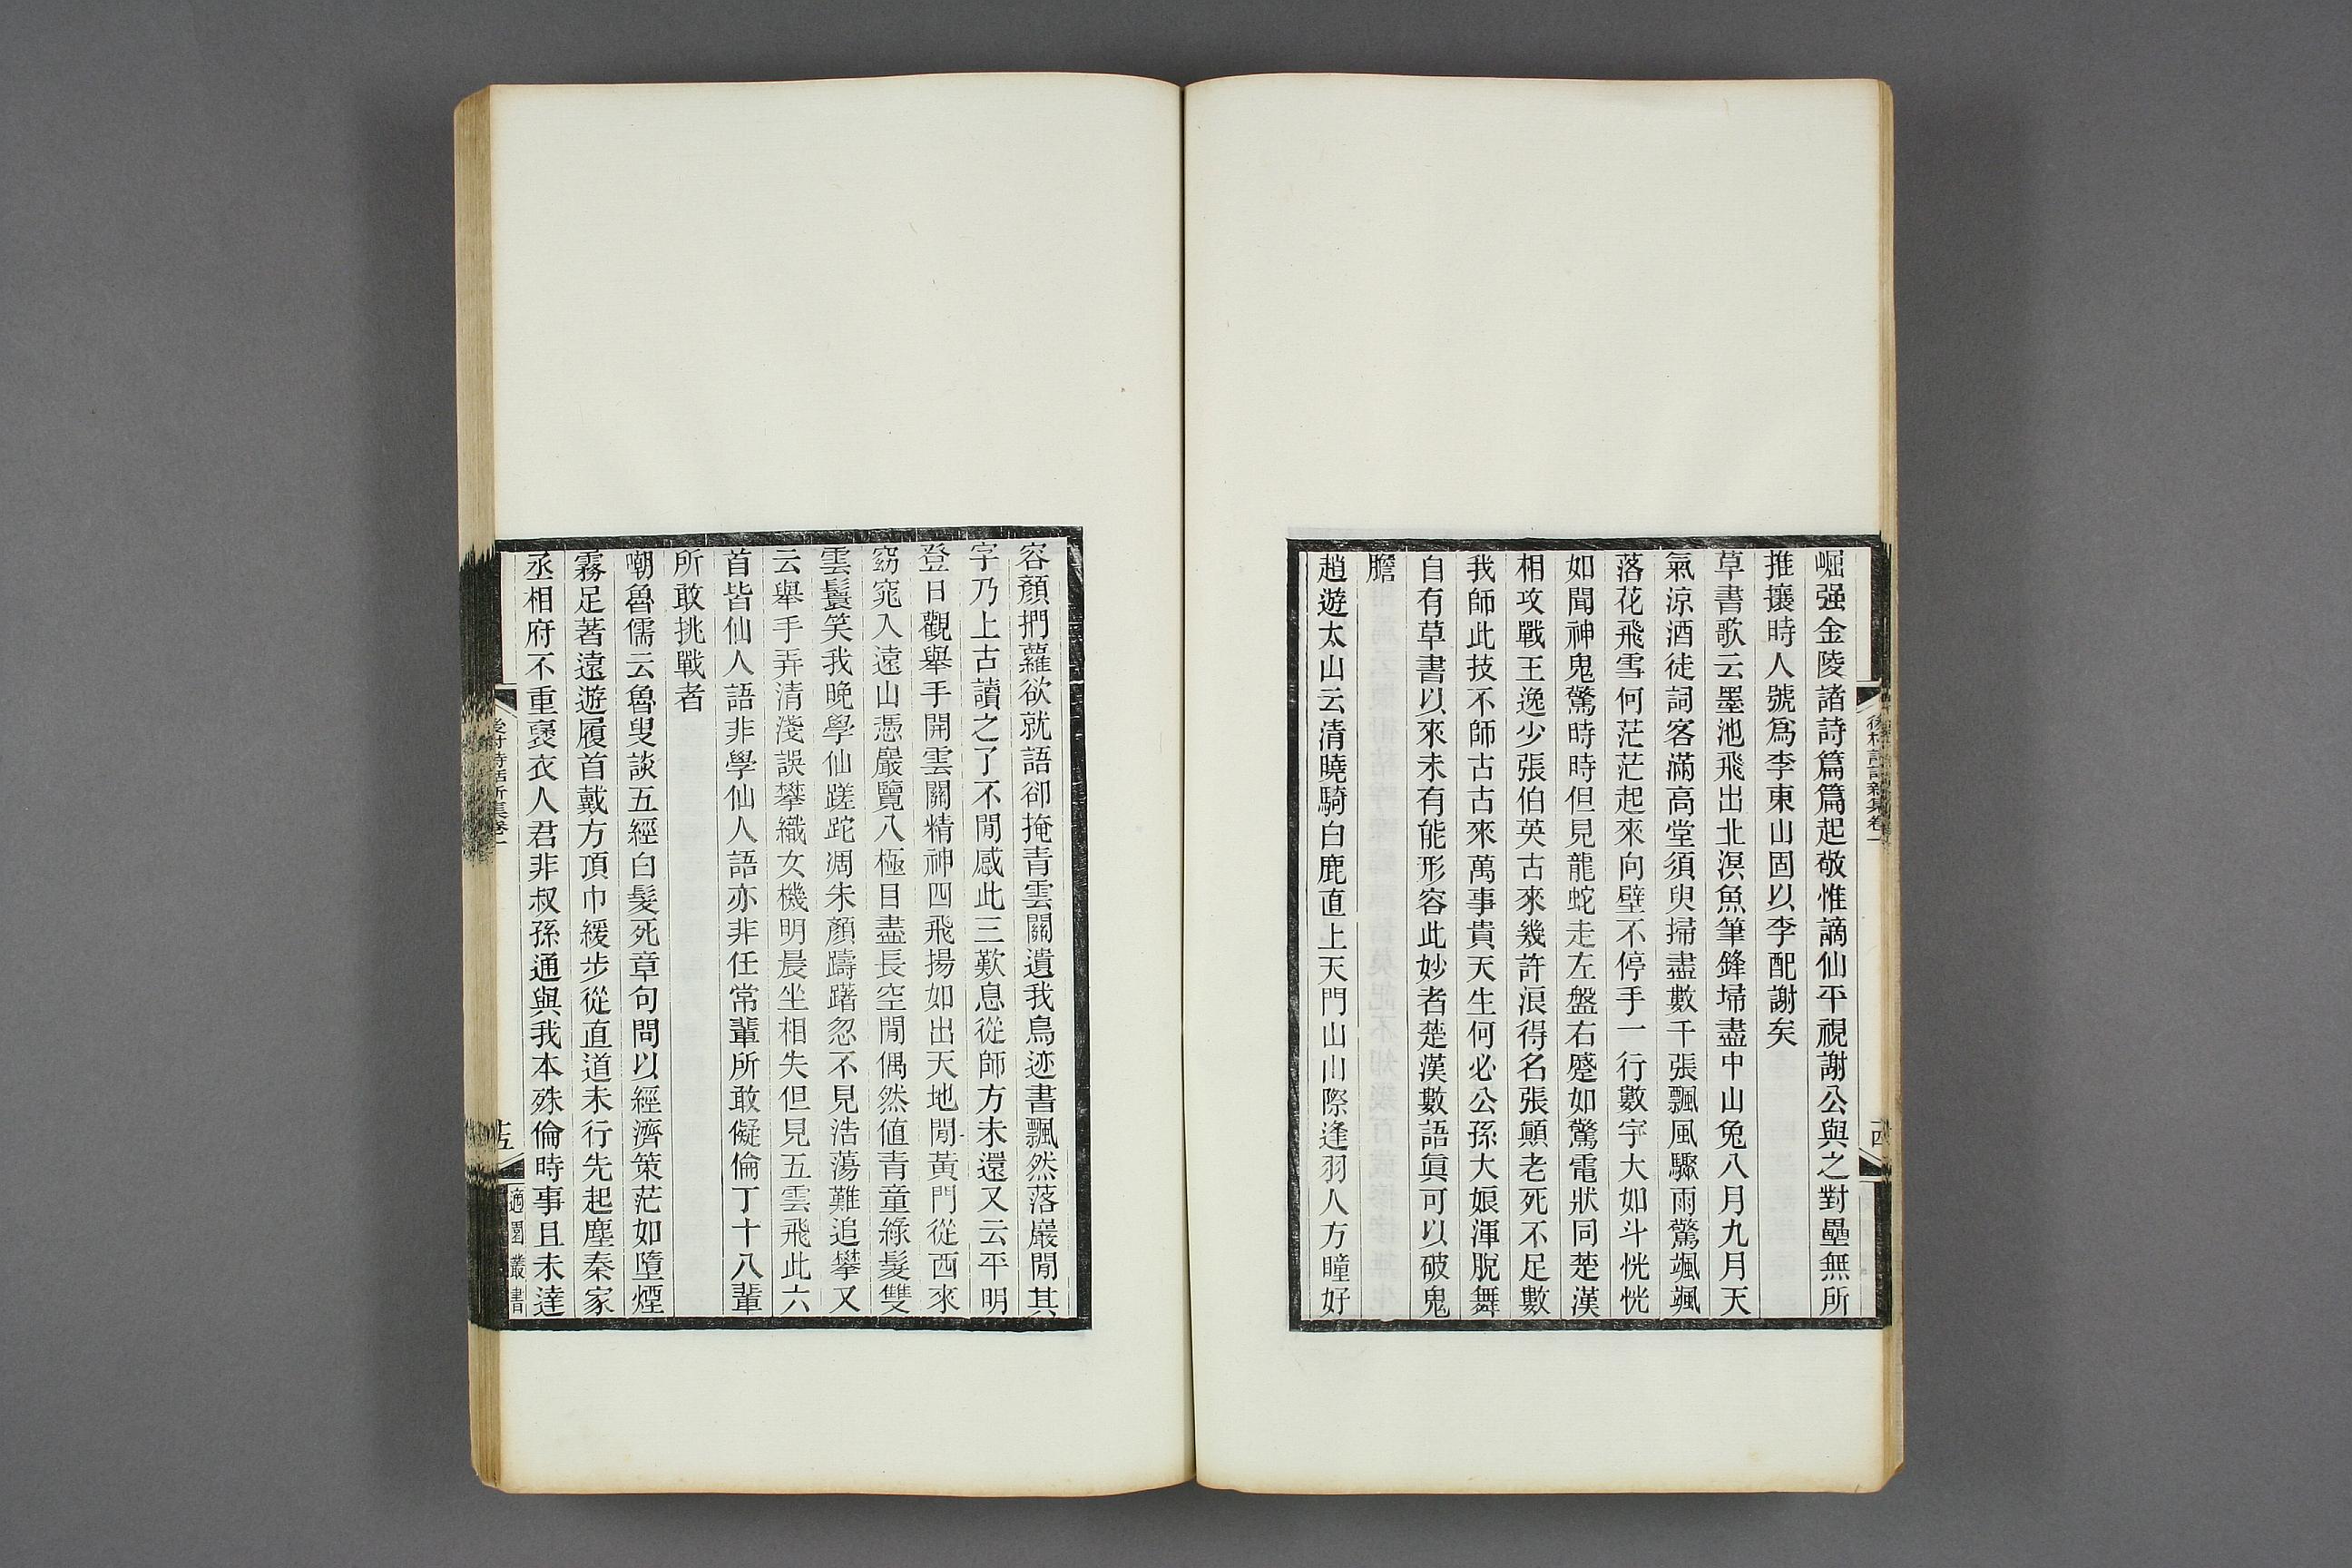 崛强金陵諸詩篇篇起敬惟謫仙平視謝公與之對壘無所
推攘時人號爲李東山固以李配謝矣
草書歌云墨池飛出北溟魚筆鋒埽盡中山兔八月九月天
氣涼酒徒詞客滿高堂須臾掃盡數千張飄風驟雨驚颯颯
落花飛雪何茫茫起來向壁不停手一行數字大如斗恍恍
如聞神鬼驚時時但見龍蛇走左盤右蹙如驚電狀同楚漢
相攻戰王逸少張伯英古來幾許浪得名張顚老死不足數
我師此技不師古古來萬事貴天生何必公孫大娘渾脫舞
自有草書以來未有能形容此妙者楚漢數語眞可以破鬼
膽
趙遊太山云清曉騎白鹿直上天門山山際逢羽人方瞳好
容顏捫蘿欲就語卻掩青雲關遺我鳥迹書飄然落巖閒其
字乃上古讀之了不閒感此三歎息從師方未還又云平明
登日觀舉手開雲關精神四飛揚如出天地閒黃門從西來
窈窕入遠山憑巖覽八極目盡長空閒偶然値青童綠髮雙
雲鬟笑我晚學仙蹉跎凋朱顏躊躇忽不見浩蕩難追攀又
云舉手弄清淺誤攀織女機明晨坐相失但見五雲飛此六
首皆仙人語非學仙人語亦非任常輩所敢儗倫丁十八輩
所敢挑戰者
嘲魯儒云魯叟談五經白髮死章句問以經濟策茫如墮煙
霧足著遠遊履首戴方頂巾緩步從直道未行先起塵秦家
丞相府不重褒衣人君非叔孫通與我本殊倫時事且未達
後村詩話新集卷一
十五
適園叢書